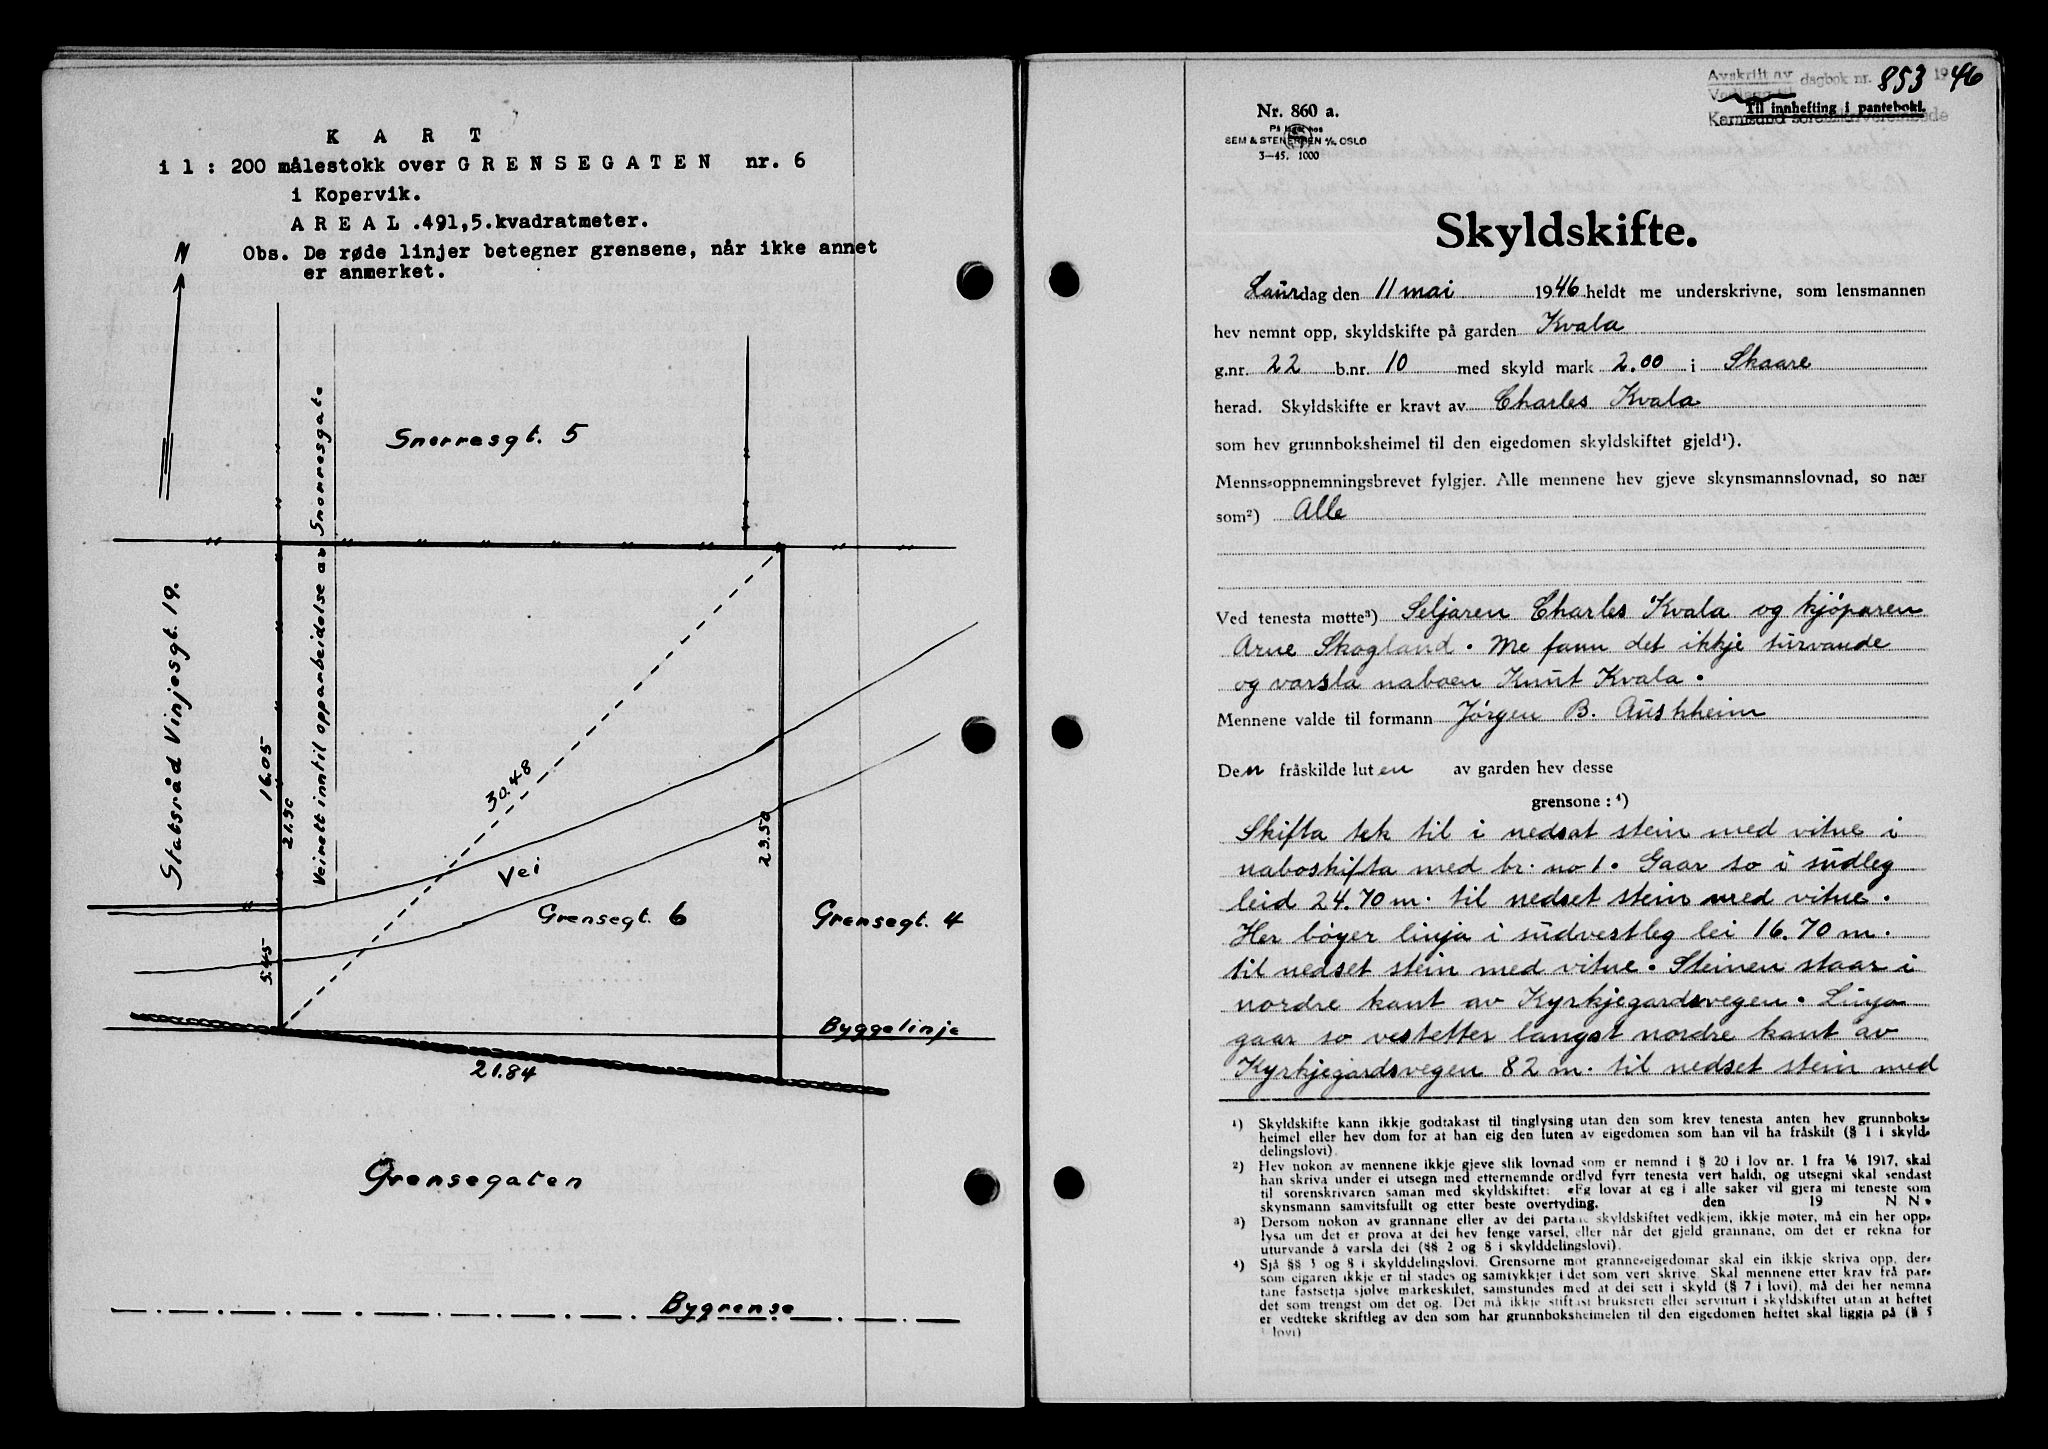 K A R T
i 1 : 200 målestokk over G R E N S E G A T E N nr. 6
i Kopervik.
A R E A L .491,5.kvadratmeter.
Obs. De røde linjer betegner grensene, når ikke annet
er anmerket.
N
Snorresgt. 5
Statsråd Vinjesgt. 19.
Veirett inntil opparbeidelse av Snorresgate
16.05
21.50
5.45
30.48
23.50
Vei
Grensegt. 6
Grensegt. 4
Byggelinje
21.84
Grensegaten
Bygrense
Avskrift av dagbok nr. 853 1946
Vedlegg til
Til innhefting i pantebok.
Karmsund sorenskriverembede
Nr. 860 a.
På lager hos
SEM & STENERSEN A/S, OSLO
3-45. 1000
Skyldskifte.
Laurdag den 11 mai 1946 heldt me underskrivne, som lensmannen
hev nemnt opp, skyldskifte på garden Kvala
g.nr. 22 b.nr. 10 med skyld mark 2.00 i Skaare
herad. Skyldskifte er kravt av Charles Kvala
som hev grunnboksheimel til den eigedomen skyldskiftet gjeld¹).
Menns-oppnemningsbrevet fylgjer. Alle mennene hev gjeve skynsmannslovnad, so nær
som²) Alle
Ved tenesta møtte³) Seljaren Charles Kvala og kjöparen
Arne Skogland. Me fann det ikkje turvande
og varsla naboen Knut Kvala.
Mennene valde til formann Jørgen B. Auskheim
Den fråskilde luten av garden hev desse
grensone : ⁴)
Skifta tek til i nedsat stein med vitne i
naboskifta med br. no 1. Gaar so i sudleg
leid 24.70 m. til nedset stein med vitne.
Her bøyer linja i sudvestleg lei 16.70 m.
til nedset stein med vitne. Steinen staar i
nordre kant av Kyrkjegardsvegen. Linja
gaar so vestetter langst nordre kant av
Kyrkjegardsvegen 82 m. til nedset stein med
¹) Skyldskifte kann ikkje godtakast til tinglysing utan den som krev tenesta anten hev grunnboks-
heimel eller hev dom for at han eig den luten av eigedomen som han vil ha fråskilt (§ 1 i skyld-
delingslovi).
²) Hev nokon av mennene ikkje gjeve slik lovnad som er nemnd i § 20 i lov nr. 1 fra ⅙ 1917, skal
han skriva under ei utsegn med etternemnde ordlyd fyrr tenesta vert haldi, og utsegni skal sendast
til sorenskrivaren saman med skyldskiftet: «Eg lovar at eg i alle saker vil gjera mi teneste som
skynsmann samvitsfullt og etter beste overtyding. den 19 N N.
³) Dersom nokon av grannane eller av dei partane skyldskiftet vedkjem, ikkje møter, må ein her opp-
lysa um det er prova at dei hev fenge varsel, eller når det gjeld grannane, om det er rekna for
uturvande å varsla dei (§§ 2 og 8 i skylddelingslovi).
⁴) Sjå §§ 3 og 8 i skylddelingslovi. Grensorne mot granne-eigedomar skal ein ikkje skriva opp, der-
som eigaren ikkje er til stades og samtykkjer i det som vert skrive. Skal mennene etter krav frå par-
tane fastsetja sjølve markeskilet, samstundes med at dei sett i skyld (§ 7 i lovi), må dei her nemna
det som trengst om det og. Det må ikkje stiftast bruksrett eller servitutt i skyldskiftet utan at heftet
er vedteke skriftleg av den som har grunnboksheimelen til den eigedomen heftet skal liggja på (§ 5
i lovi)